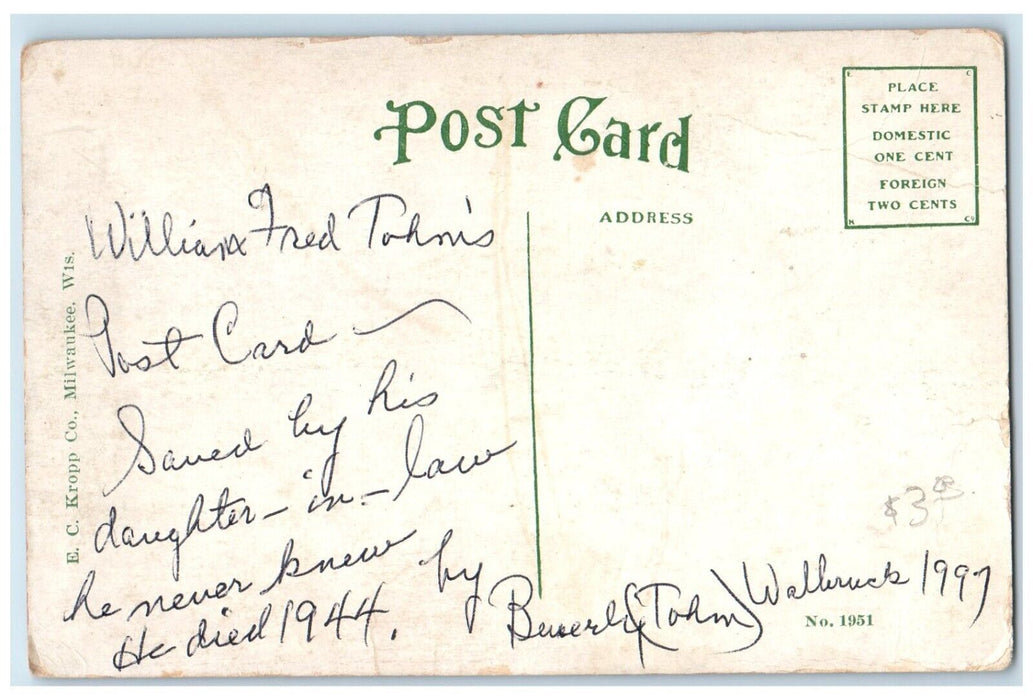 Post Card
PLACE
STAMP HERE
DOMESTIC
ONE CENT
FOREIGN
TWO CENTS
ADDRESS
E. C. Kropp Co., Milwaukee. Wis.
William Fred Tohm's
Post Card
Saved by his
daughter-in-law
he never knew
He died 1944. by
Beverly (Tohm) Walbruck 1997
No. 1951